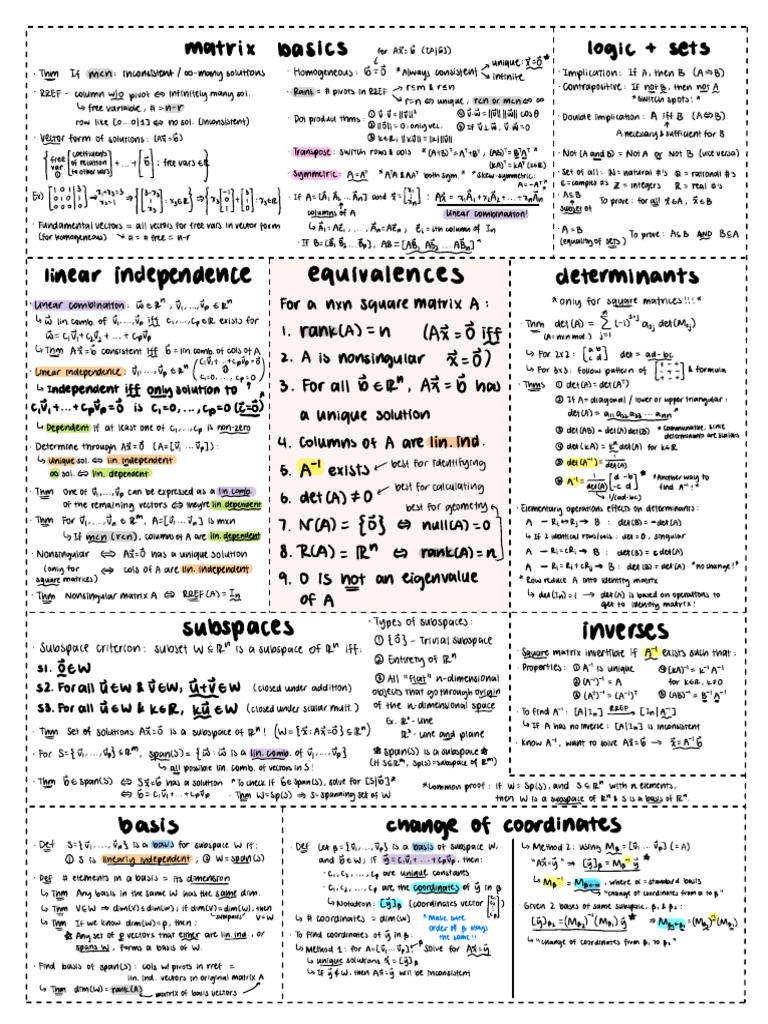 matrix basics
· Thm If m<n: inconsistent / ∞-many solutions
· RREF - column w/o pivot ↔ infinitely many sol.
↳ free variable, # = n-r
row like [0...0|≤] ↔ no sol. (inconsistent)
· Vector form of solutions: (Ax⃗=b⃗)
Ex)
· Fundamental vectors = all vectors for free vars in vector form
(for homogeneous) ↳ # = n free = n-r
for Ax⃗=b⃗ ([A|b⃗])
· Homogeneous: b⃗=0⃗ *Always consistent
unique: x⃗=0⃗
infinite
· Rank = # pivots in RREF
r≤m & r≤n
r=n ↔ unique, r<n or m<n ↔ ∞
· Dot product thms:
① v⃗·v⃗=||v⃗||²
② ||0⃗||=0, only vec.
③ k∈R, ||kv⃗||=|k|||v⃗||
④ v⃗·w⃗=||v⃗||||w⃗||cosθ
⑤ If v⃗⊥w⃗, v⃗·w⃗=0
· Transpose: switch rows & cols *(A+B)ᵀ=Aᵀ+Bᵀ, (AB)ᵀ=BᵀAᵀ*
(kA)ᵀ=kAᵀ (k∈R)
· Symmetric: A=Aᵀ *AᵀA & AAᵀ both sym.* *Skew-symmetric:
A=-Aᵀ*
· If A=[A⃗₁ A⃗₂...A⃗n] and x⃗=[x₁ ⋮ xn]: Ax⃗=x₁A⃗₁+x₂A⃗₂+...+xnA⃗n
columns of A
linear combination!
↳ A⃗₁=Ae⃗₁,...,A⃗n=Ae⃗n, e⃗i=ith column of In
· If B=[B⃗₁ B⃗₂...B⃗p], AB=[AB⃗₁ AB⃗₂ ... AB⃗n]*
logic + sets
· Implication: If A, then B (A⇒B)
· Contrapositive: If not B, then not A
*switch spots!*
· Double implication: A iff B (A⇔B)
A necessary & sufficient for B
· Not (A and B) = Not A or Not B (vice versa)
· Set of all: N = natural #s Q = rational #s
C = complex #s Z = integers R = real #s
· A⊆B
subset of
To prove: for all x⃗∈A, x⃗∈B
· A=B
(equality of sets)
To prove: A⊆B AND B⊆A
linear independence
· Linear combination: w⃗∈Rⁿ, v⃗₁,...,v⃗p∈Rⁿ
↳ w⃗ lin. comb. of v⃗₁,...,v⃗p iff c₁,...,cp∈R exists for
w⃗=c₁v⃗₁+c₂v⃗₂+...+cpv⃗p
↳ Thm Ax⃗=b⃗ consistent iff b⃗=lin. comb. of cols of A
· Linear independence: v⃗₁,...,v⃗p∈Rⁿ
↳ Independent iff only solution to
c₁v⃗₁+...+cpv⃗p=0⃗ is c₁=0,...,cp=0 (c⃗=0⃗)
↳ Dependent if at least one of c₁,...,cp is non-zero
· Determine through Ax⃗=0⃗ (A=[v⃗₁ ... v⃗p]):
↳ Unique sol. ↔ lin. independent
∞ sol. ↔ lin. dependent
· Thm one of v⃗₁,...,v⃗p can be expressed as a lin. comb.
of the remaining vectors ↔ they're lin. dependent
· Thm For v⃗₁,...,v⃗p∈Rᵐ, A=[v⃗₁...v⃗p] is mxn
↳ If m<n (r<n), column of A are lin. dependent
· Nonsingular ⇔ Ax⃗=0⃗ has a unique solution
(only for
square matrices)
⇔ cols of A are lin. independent
· Thm Nonsingular matrix A ⇔ RREF(A)=In
equivalences
For a nxn square matrix A:
1. rank(A)=n (Ax⃗=0⃗ iff
2. A is nonsingular x⃗=0⃗)
3. For all b⃗∈Rⁿ, Ax⃗=b⃗ has
a unique solution
4. Columns of A are lin. ind.
5. A⁻¹ exists ← best for identifying
6. det(A)≠0 ← best for calculating
best for geometry
7. N(A)={0⃗} ⇔ null(A)=0
8. R(A)=Rⁿ ⇔ rank(A)=n
9. 0 is not an eigenvalue
of A
determinants
*only for square matrices!!!*
· Thm det(A) = Σ (-1)ⁱ⁺ʲ aij det(Mij)
↳ For 2x2: [a b c d] det = ad-bc
↳ For 3x3: follow pattern of [+ - + - + - + - +] & formula
· Thms ① det(A)=det(Aᵀ)
② If A = diagonal / lower or upper triangular:
det(A)=a₁₁a₂₂a₃₃...ann*
③ det(AB)=det(A)det(B) *Commutative, since
determinants are scalars
④ det(kA)=kⁿdet(A) for k∈R
⑤ det(A⁻¹)=1/det(A)
⑥ A⁻¹=1/det(A) [d -b -c a]*
1/(ad-bc)
*Another way to
find A⁻¹!*
· Elementary operations effects on determinants:
A - Ri↔Rj → B: det(B)=-det(A)
↳ If 2 identical rows/cols: det=0, singular
A - cRi → B: det(B)=cdet(A)
A - Ri+cRj → B: det(B)=det(A) *no change!*
*Row reduce A into identity matrix
↳ det(In)=1 → det(A) is based on operations to
get to identity matrix!
subspaces
· Subspace criterion: subset W⊆Rⁿ is a subspace of Rⁿ iff:
S1. 0⃗∈W
S2. For all u⃗∈W & v⃗∈W, u⃗+v⃗∈W (closed under addition)
S3. For all u⃗∈W & k∈R, ku⃗∈W (closed under scalar mult.)
· Thm Set of solutions Ax⃗=0⃗ is a subspace of Rⁿ! (W={x⃗:Ax⃗=0⃗}⊆Rⁿ)
· For S={v⃗₁,...,v⃗p}⊆Rᵐ, span(S)={w⃗:w⃗ is a lin. comb. of v⃗₁,...,v⃗p}
↳ all possible lin. comb. of vectors in S!
· Thm b⃗∈span(S) ⇔ Sx⃗=b⃗ has a solution *To check if b⃗∈span(S), solve for [S|b⃗]*
⇔ b⃗=c₁v⃗₁+...+cpv⃗p · Thm W=Sp(S) → S=spanning set of W
· Types of subspaces:
① {0⃗} - Trivial subspace
② Entirety of Rⁿ
③ All "flat" n-dimensional
objects that go through origin
of the n-dimensional space
Ex. R²-line
R³-line and plane
*span(S) is a subspace*
(If S⊆Rᵐ, Sp(S)=subspace of Rᵐ)
*Common proof: if W=Sp(S), and S⊆Rⁿ with n elements,
then W is a subspace of Rⁿ & S is a basis of Rⁿ.
inverses
· Square matrix invertible if A⁻¹ exists such that:
· Properties: ① A⁻¹ is unique
② (A⁻¹)⁻¹=A
③ (Aᵀ)⁻¹=(A⁻¹)ᵀ
④ (kA)⁻¹=k⁻¹A⁻¹
for k∈R, k≠0
⑤ (AB)⁻¹=B⁻¹A⁻¹
· To find A⁻¹: [A|In] RREF→ [In|A⁻¹]
↳ If A has no inverse: [A|In] is inconsistent
· Know A⁻¹, want to solve Ax⃗=b⃗ → x⃗=A⁻¹b⃗
basis
· Def S={v⃗₁,...,v⃗p} is a basis for subspace W if:
① S is linearly independent; ② W=span(S)
· Def # elements in a basis = its dimension
↳ Thm Any basis in the same W has the same dim.
↳ Thm V⊆W → dim(V)≤dim(W); if dim(V)=dim(W), then
subspaces V=W
↳ Thm If we know dim(W)=p, then:
*Any set of p vectors that either are lin. ind., or
spans W, forms a basis of W.
· Find basis of span(S): cols w/ pivots in rref =
lin. ind. vectors in original matrix A
↳ Thm dim(W)=rank(A)
matrix of basis vectors
change of coordinates
· Def Let β={v⃗₁,...,v⃗p} is a basis of subspace W,
and y⃗∈W; if y⃗=c₁v⃗₁+...+cpv⃗p, then:
· c₁,c₂,...,cp are unique constants
· c₁,c₂,...,cp are the coordinates of y⃗ in β
↳ Notation: [y⃗]β (coordinates vector
↳ # coordinates = dim(W)
*Make sure
order of β stays
the same!!*
· To find coordinates of y⃗ in β:
↳ Method 1: for A=[v⃗₁...v⃗p], Solve for Ax⃗=y⃗
↳ unique solutions x⃗=[y⃗]β
↳ If y⃗∉W, then Ax⃗=y⃗ will be inconsistent
↳ Method 2: Using Mβ=[v⃗₁ ... v⃗p] (=A)
"Ax⃗=y⃗" ⇒ [y⃗]β=Mβ⁻¹y⃗*
↳ Mβ⁻¹=Mβ←α, where α=standard basis
"change of coordinates from α to β"
· Given 2 bases of same subspace, β₁ & β₂:
[y⃗]β₂=(Mβ₂)⁻¹(Mβ₁)y⃗* ⇒ Mβ₂←β₁=(Mβ₂)⁻¹(Mβ₁)
↳ "change of coordinates from β₁ to β₂"